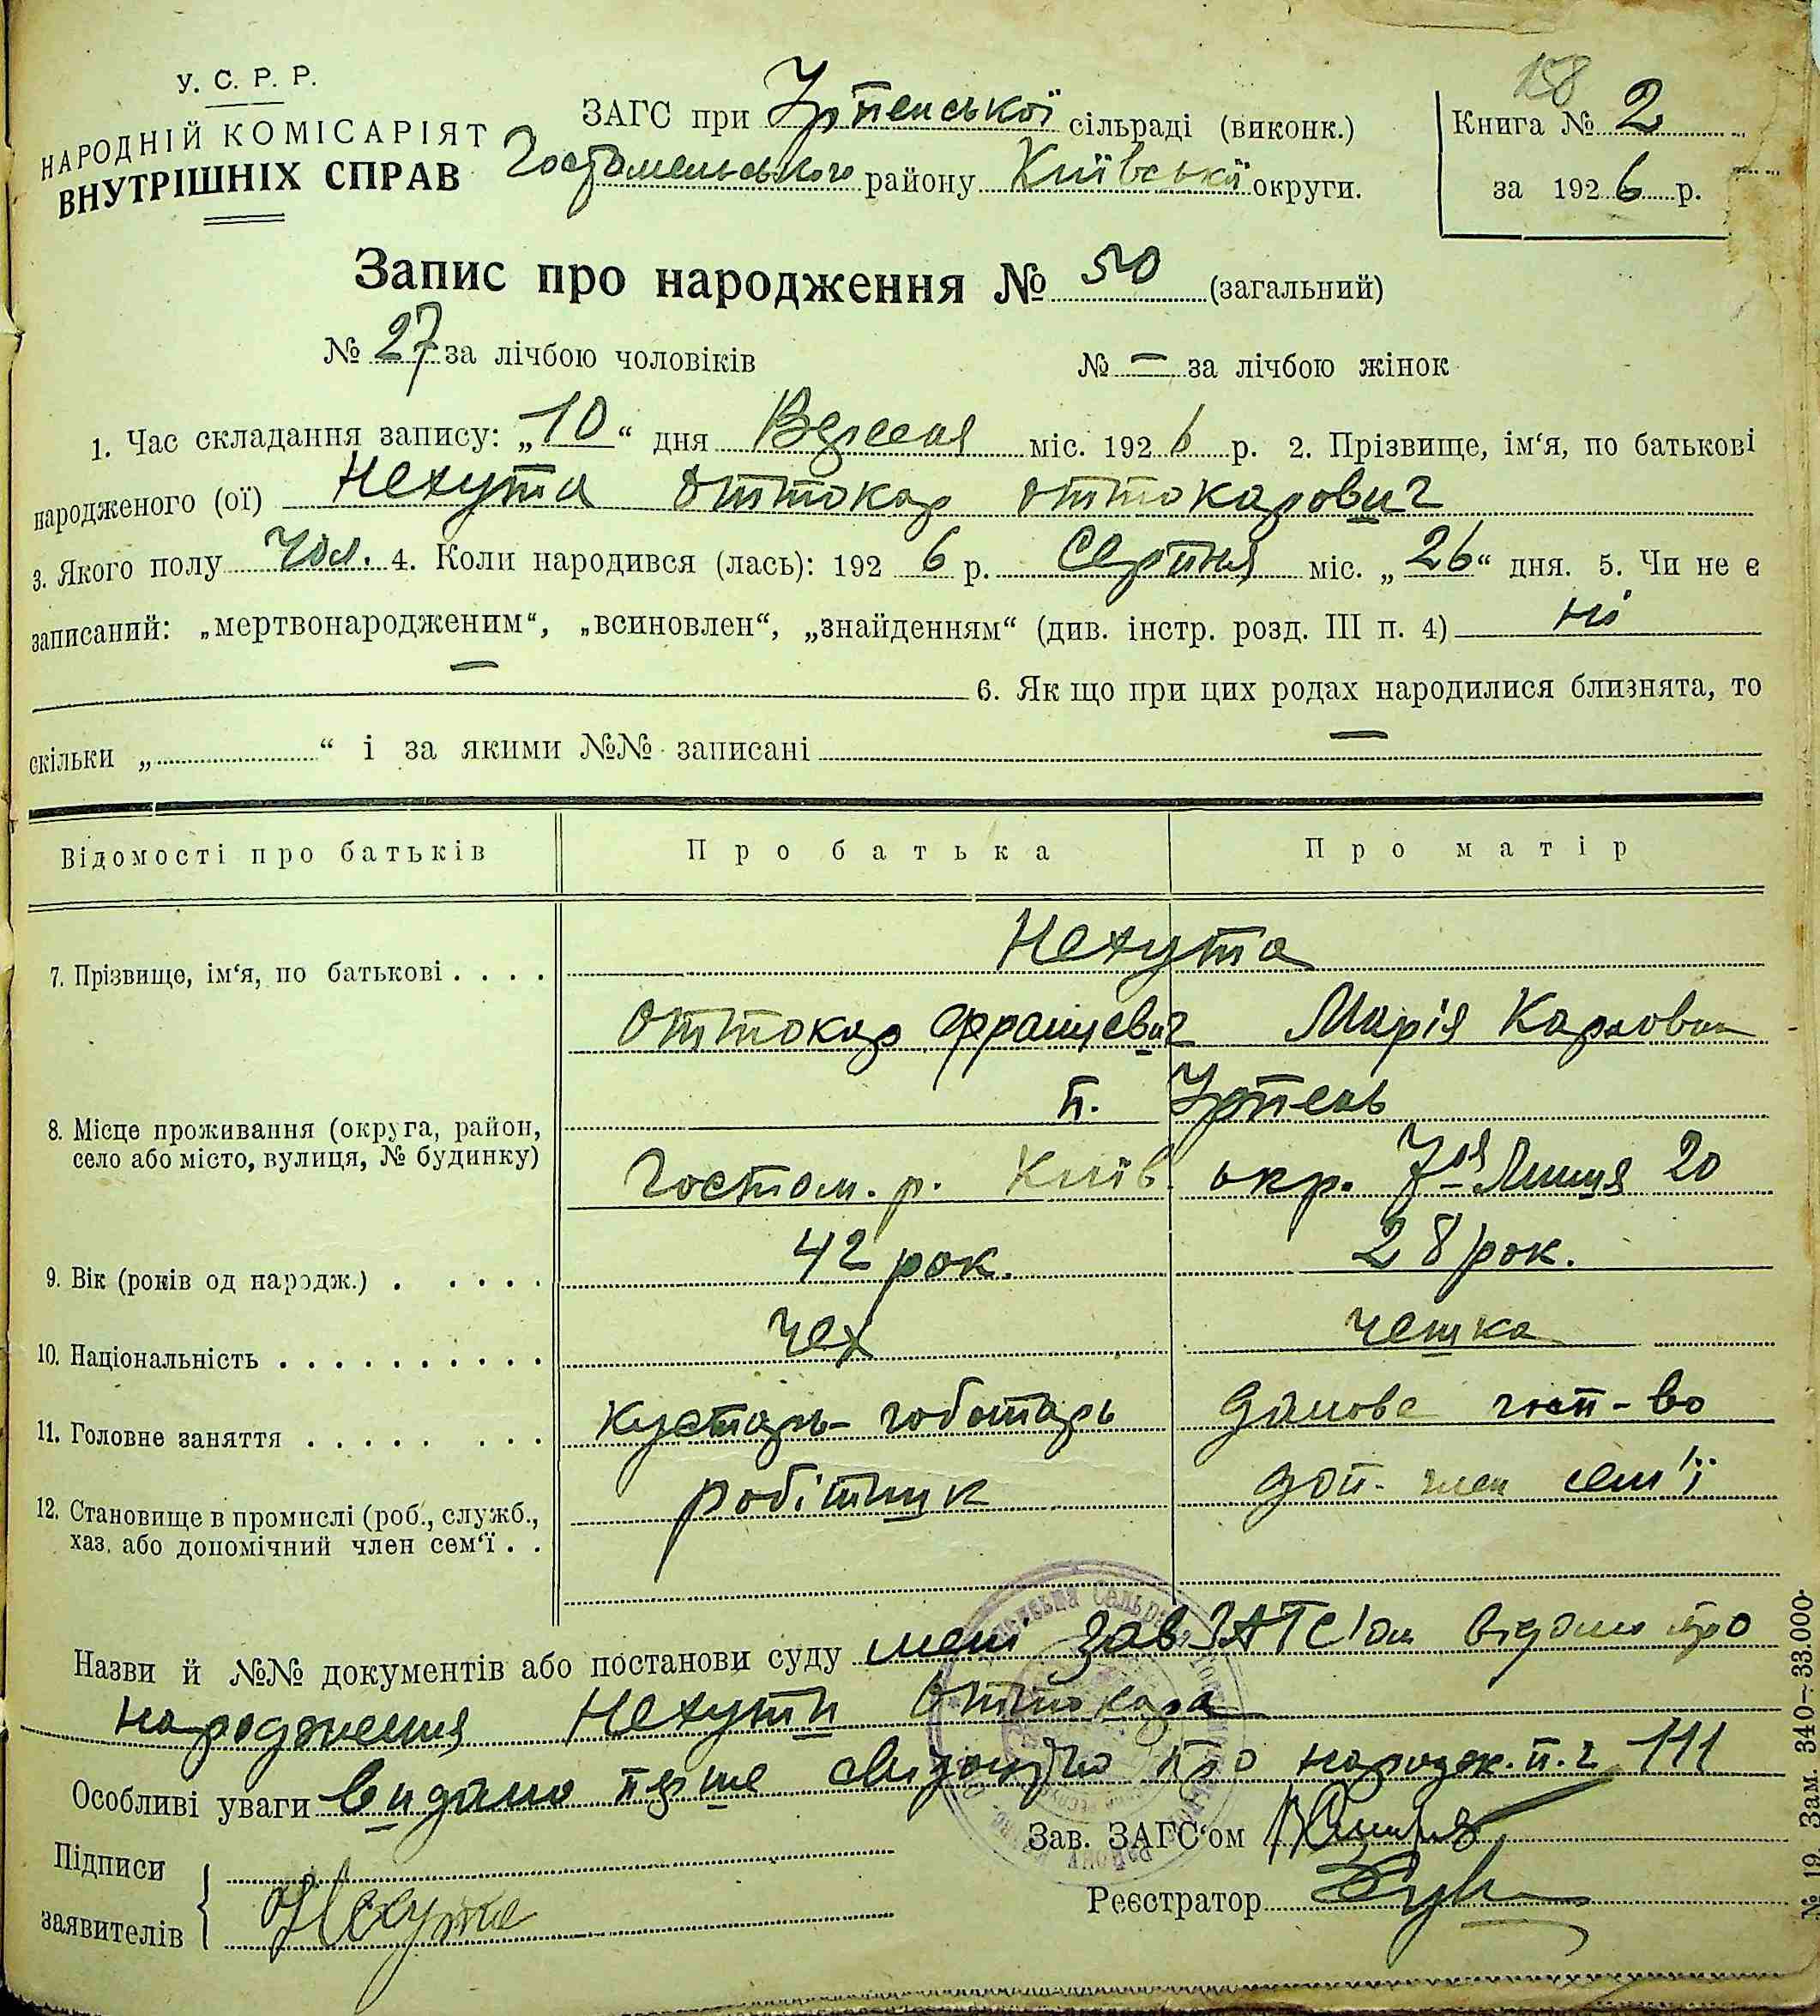 158
У. С. Р. Р.
НАРОДНІЙ КОМІСАРІЯТ
ВНУТРІШНІХ СПРАВ
ЗАГС при Ірпенської сільраді (виконк.)
Гостомельського району Київської округи.
Книга № 2
за 1926 р.
Запис про народження № 50 (загальний)
№ 27 за лічбою чоловіків № — за лічбою жінок
1. Час складання запису: „10“ дня Вересня міс. 1926 р. 2. Прізвище, ім‘я, по батькові
народженого (ої) Нехута Оттокар Оттокарович
3. Якого полу чол. 4. Коли народився (лась): 1926 р. Серпня міс. „26“ дня. 5. Чи не є
записаний: „мертвонародженим“, „всиновлен“, „знайденням“ (див. інстр. розд. III п. 4) ні
— 6. Як що при цих родах народилися близнята, то
скільки „ “ і за якими №№ записані —
Відомості про батьків Про батька Про матір
7. Прізвище, ім‘я, по батькові . . . . Нехута
Оттокар Францевич Марія Карловна
8. Місце проживання (округа, район, п. Ірпень
село або місто, вулиця, № будинку) Гостом. р. Київ. окр. 7ая Линия 20
9. Вік (років од народж.) . . . . . 42 рок. 28 рок.
10. Національність . . . . . . . . . . чех чешка
11. Головне заняття . . . . . . . . кустарь-чоботарь домове госп-во
12. Становище в промислі (роб., служб., робітник доп. член сем'ї
хаз. або допомічний член сем‘ї . .
Назви й №№ документів або постанови суду мені зав ЗАГС'ом відомо про
народження Нехути Оттокара
Особливі уваги видано перше свидоцтво про народж. п. ч. 111
Підписи
заявителів Нехута
Зав. ЗАГС‘ом
Реєстратор
№ 19. Зам. 340—33.000.